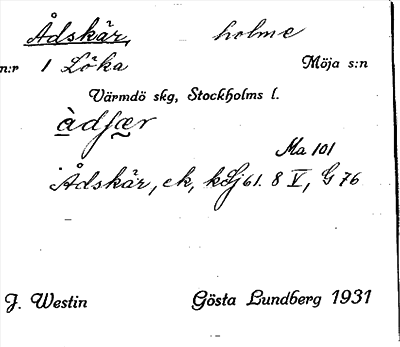 Ådskär, holme
n:r 1 Löka Möja s:n
Värmdö skg, Stockholms l.
àdsær
Ma 101
Ådskär, ek, kSj 61. 8 V, G 76
J. Westin Gösta Lundberg 1931